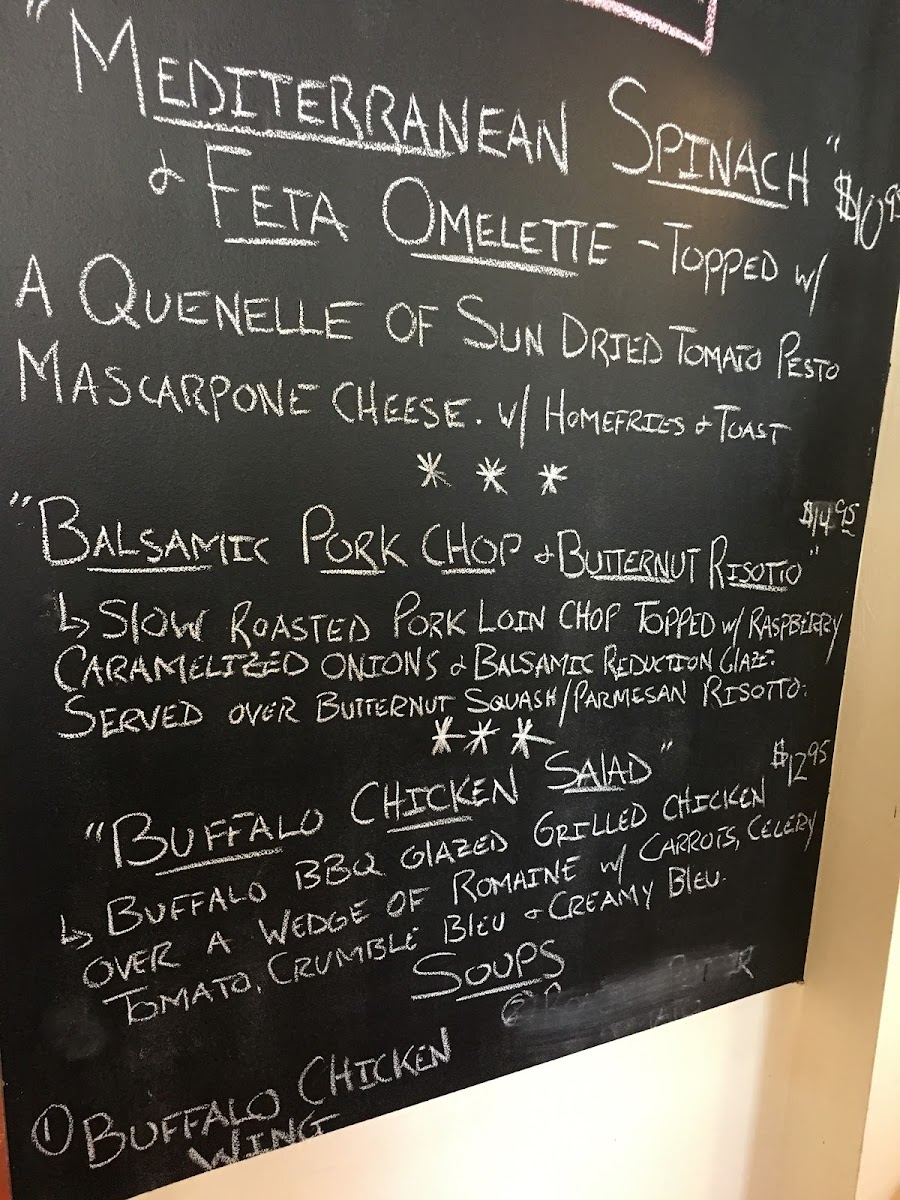 "MEDITERRANEAN SPINACH" $10.95
& FETA OMELETTE - TOPPED w/
A QUENELLE OF SUN DRIED TOMATO PESTO
MASCARPONE CHEESE. w/ HOMEFRIES & TOAST
* * *
$14.95
"BALSAMIC PORK CHOP & BUTTERNUT RISOTTO"
↳ SLOW ROASTED PORK LOIN CHOP TOPPED w/ RASPBERRY
CARAMELIZED ONIONS & BALSAMIC REDUCTION GLAZE.
SERVED OVER BUTTERNUT SQUASH/PARMESAN RISOTTO.
* * *
"BUFFALO CHICKEN SALAD" $12.95
↳ BUFFALO BBQ GLAZED GRILLED CHICKEN
OVER A WEDGE OF ROMAINE w/ CARROTS, CELERY
TOMATO, CRUMBLE BLEU & CREAMY BLEU.
SOUPS
②
① BUFFALO CHICKEN
WING